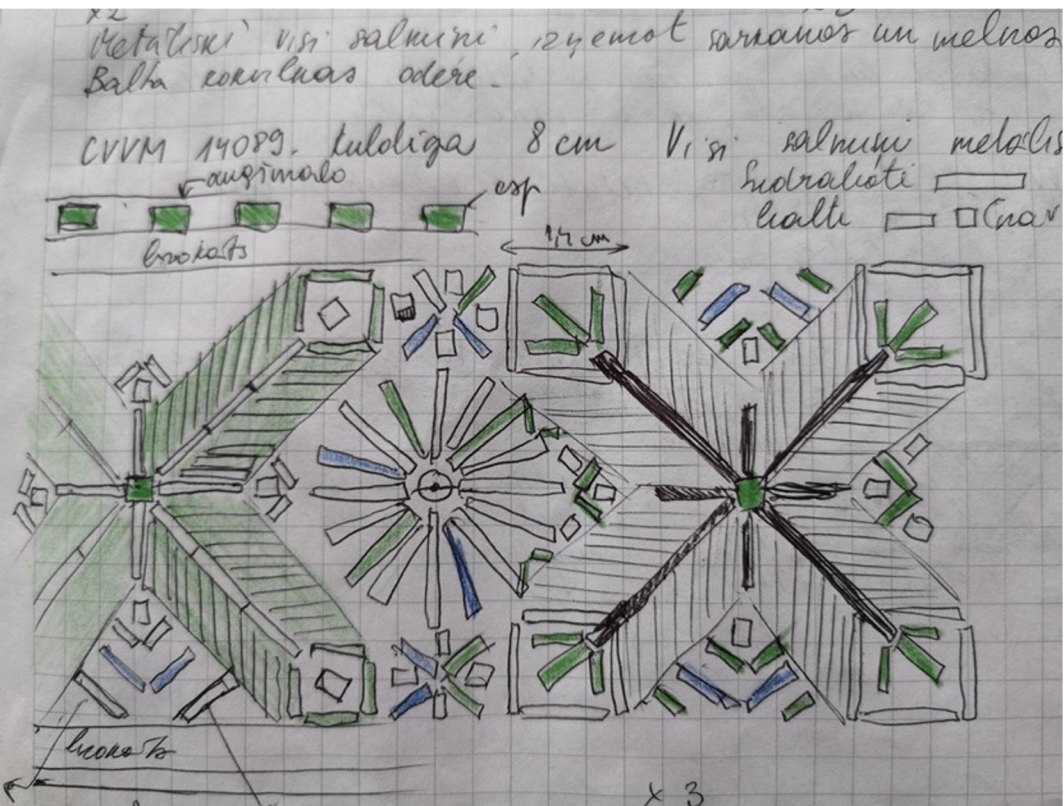 x2
Metāliski visi salmiņi, izņemot sarkanos un melnos
Balta kokvilnas odere.
CVVM 14089. Kuldīga 8 cm Visi salmiņi metālis
augšmalo
esp
brokāts
1,7 cm
balti
brokāts
x 3